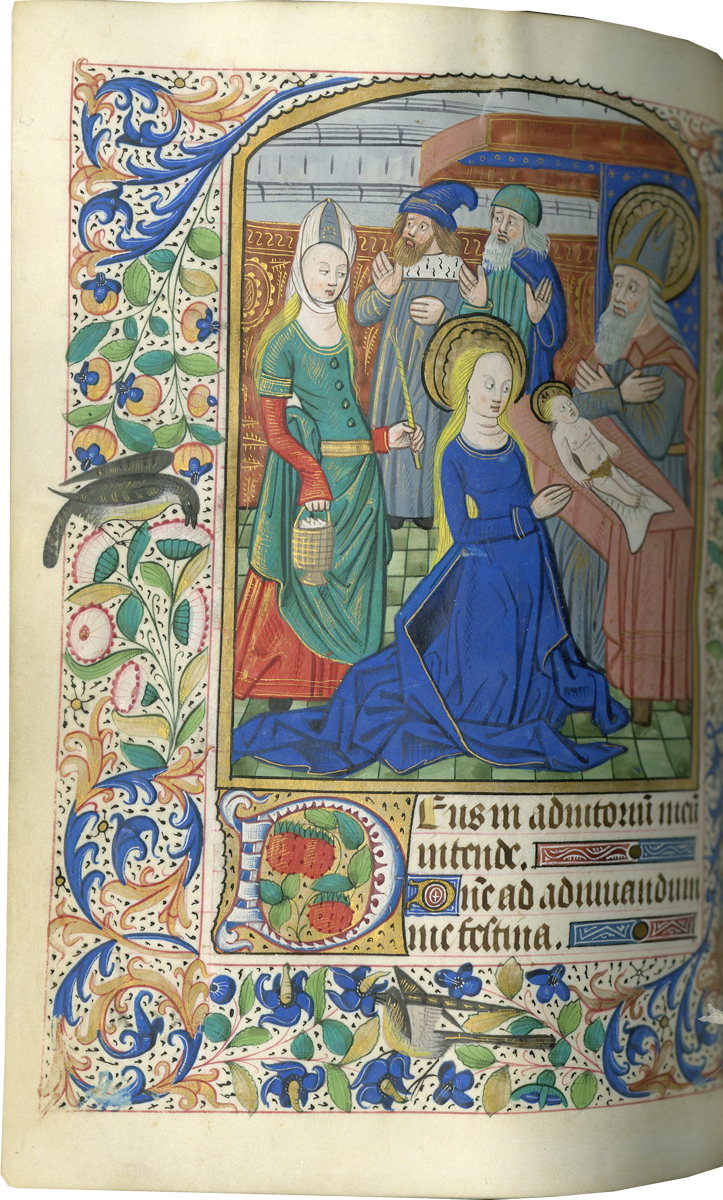 Deus in adiutoriū meū
intende.
Dñe ad adiuuandum
me festina.